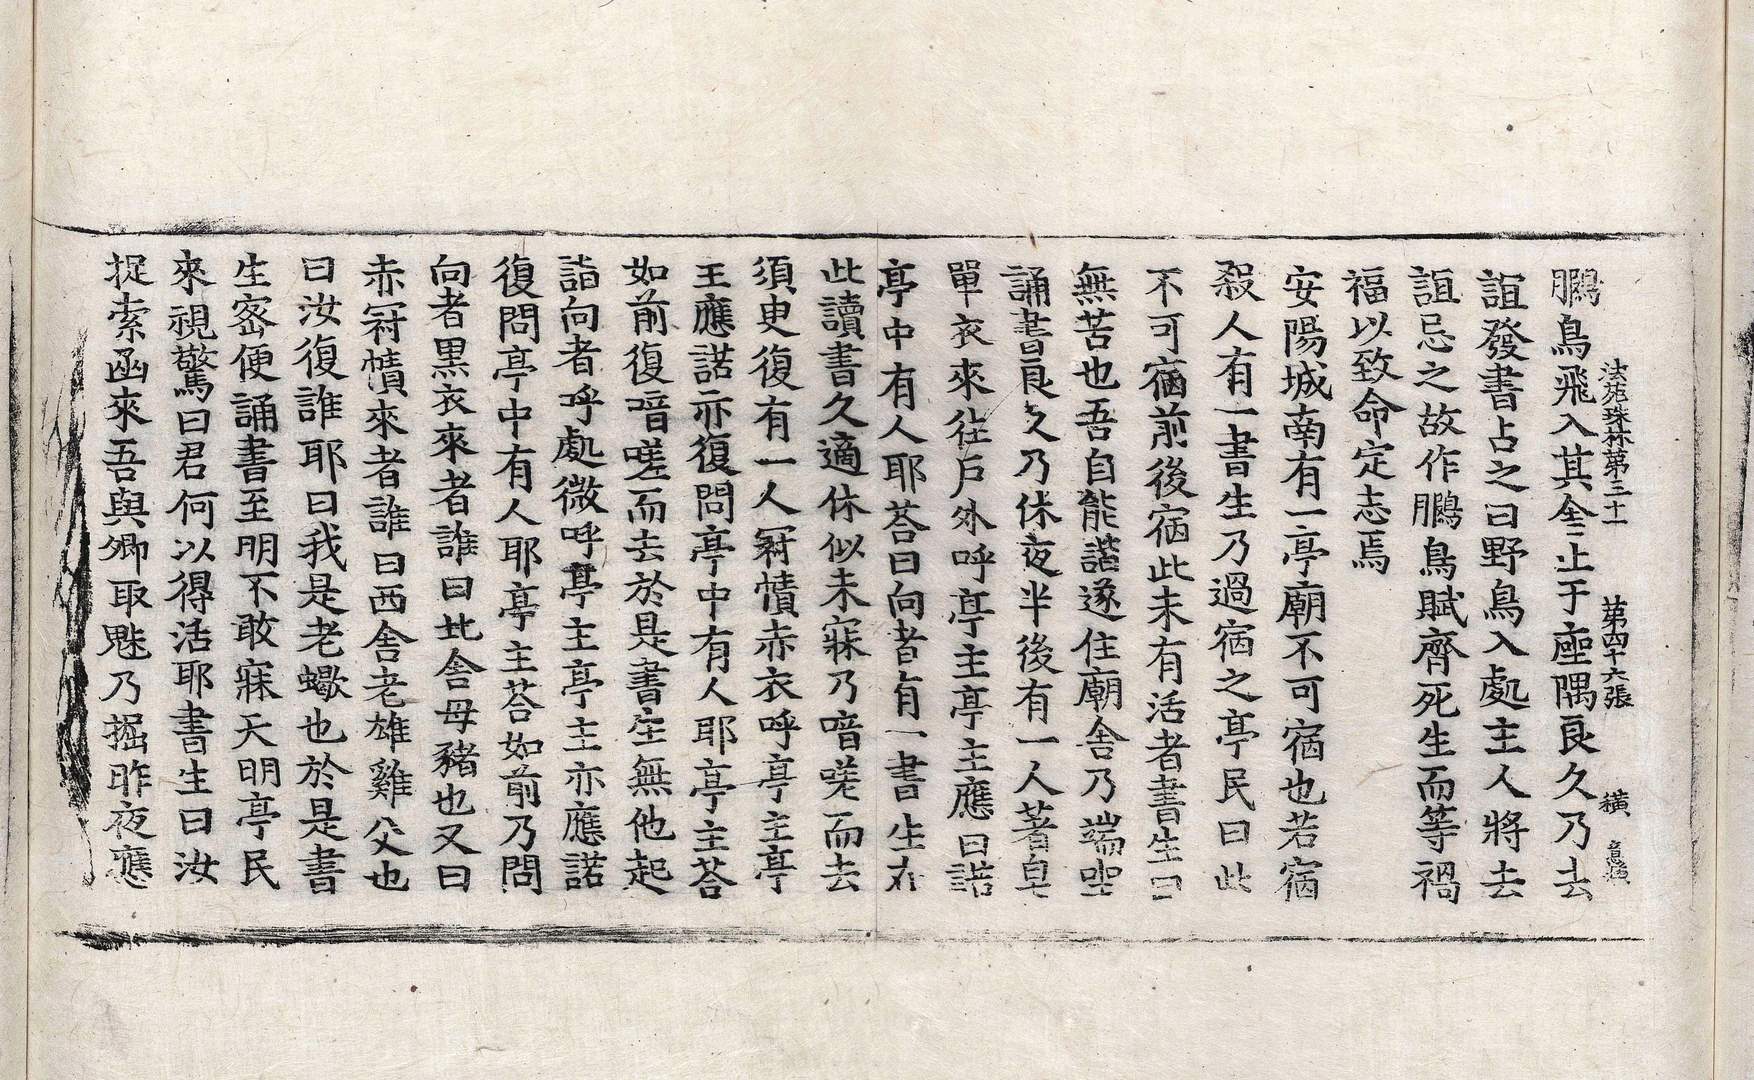 法苑珠林第三十一 第四十六張 橫
鵩鳥飛入其舍止于座隅良久乃去
誼發書占之曰野鳥入處主人將去
誼忌之故作鵩鳥賦齊死生而等禍
福以致命定志焉
安陽城南有一亭廟不可宿也若宿
殺人有一書生乃過宿之亭民曰此
不可宿前後宿此未有活者書生曰
無苦也吾自能諧遂住廟舍乃端坐
誦書良久乃休夜半後有一人著皁
單衣來往戶外呼亭主亭主應曰諾
亭中有人耶荅曰向者有一書生在
此讀書久適休似未寐乃喑嗟而去
須臾復有一人冠幘赤衣呼亭主亭
主應諾亦復問亭中有人耶亭主荅
如前復喑嗟而去於是書生無他起
詣向者呼處微呼亭主亭主亦應諾
復問亭中有人耶亭主荅如前乃問
向者黑衣來者誰曰北舍母豬也又曰
赤冠幘來者誰曰西舍老雄雞父也
曰汝復誰耶曰我是老蠍也於是書
生密便誦書至明不敢寐天明亭民
來視驚曰君何以得活耶書生曰汝
捉索函來吾與卿取魅乃掘昨夜應